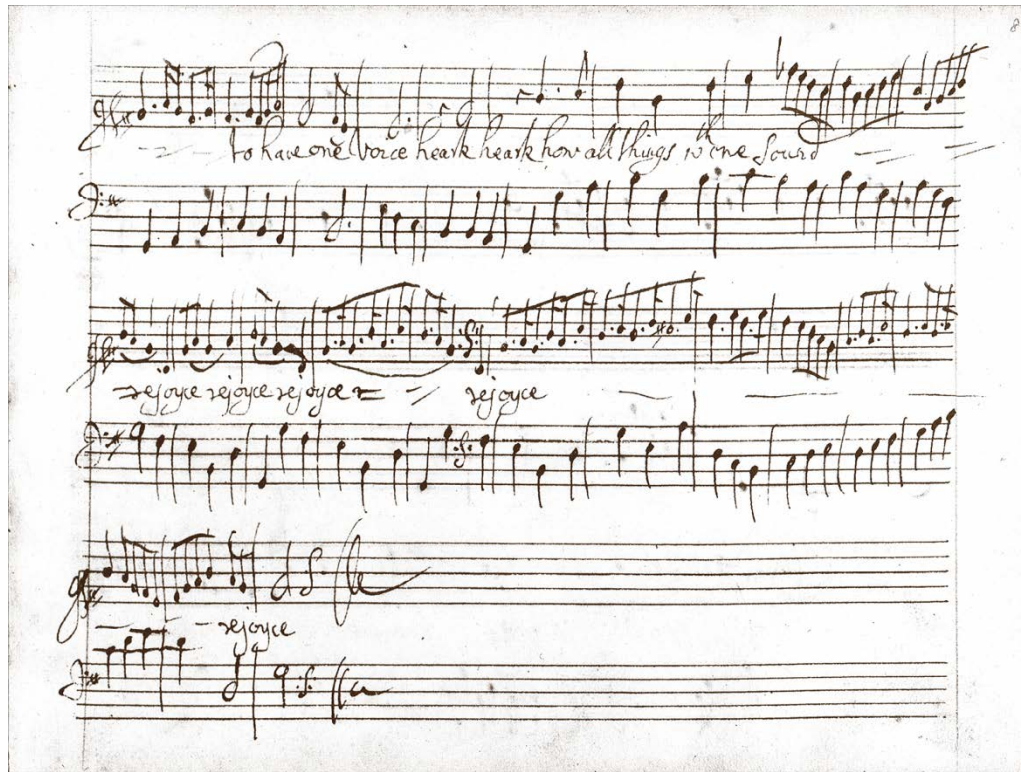 8
to have one voice heark heark how all things wth one sound
rejoyce rejoyce rejoyce rejoyce
rejoyce